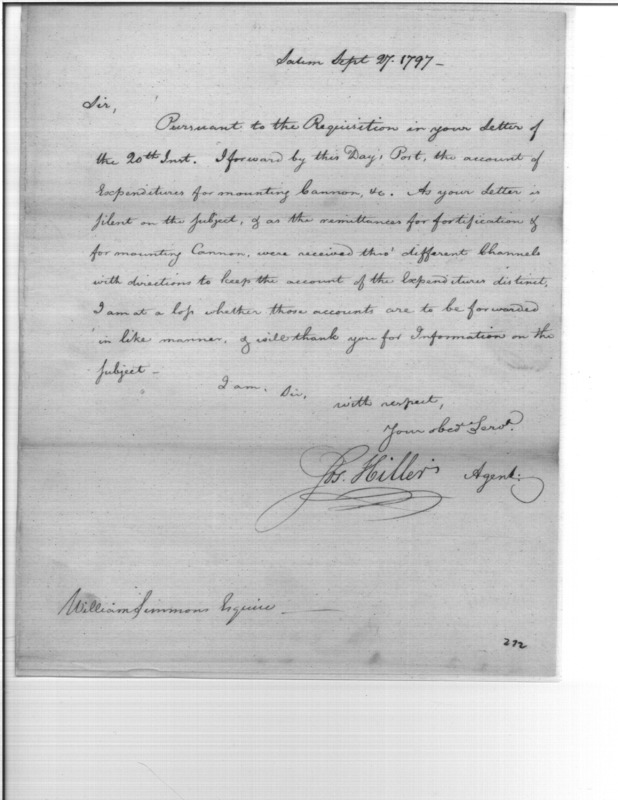 Salem Sept 27. 1797 -
Sir,
Pursuant to the Requisition in your Letter of
the 20th Inst. I forward by this Day's Post, the account of
Expenditures for mounting Cannon, &c. As your Letter is
silent on the subject, & as the remittances for fortification &
for mounting Cannon, were received thro' different Channels
with directions to keep the account of the Expenditures distinct,
I am at a loss whether those accounts are to be forwarded
in like manner, & will thank you for Information on the
subject -
I am, Sir,
with respect,
Your obedt. Servt.
Jos. Hiller Agent.
William Simmons Esquire
272